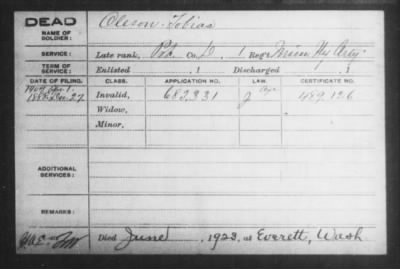 DEAD
NAME OF SOLDIER: Oleson Tobias
SERVICE: Late rank, Pvt. Co. D, 1 Reg't Minn Hy Arty
TERM OF SERVICE: Enlisted , 1 Discharged , 1
DATE OF FILING. CLASS. APPLICATION NO. LAW. CERTIFICATE NO.
1888 Dec. 27 Invalid, 682.331 489.126
Widow,
Minor,
ADDITIONAL SERVICES:
REMARKS:
Died June , 1923, at Everett, Wash